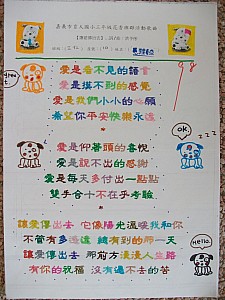 愛是看不見的語言
愛是摸不到的感覺
愛是我們小小的心願
希望你平安快樂永遠
愛是仰著頭的喜悅
愛是說不出的感謝
愛是每天多付出一點點
雙手合十不在乎考驗
讓愛傳出去 它像陽光溫暖我和你
不管有多遙遠 總有到的那一天
讓愛傳出去 那前方漫漫人生路
有你的祝福 沒有過不去的苦
ok.
z z z
Hello.
98